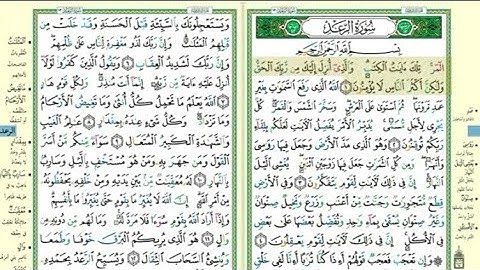 سُورَةُ الرَّعْدِ
بِسْمِ اللَّهِ الرَّحْمَٰنِ الرَّحِيمِ
الٓمٓر تِلْكَ ءَايَٰتُ الْكِتَٰبِ وَالَّذِىٓ أُنزِلَ إِلَيْكَ مِن رَّبِّكَ الْحَقُّ
وَلَٰكِنَّ أَكْثَرَ النَّاسِ لَا يُؤْمِنُونَ ١ اللَّهُ الَّذِى رَفَعَ السَّمَٰوَٰتِ بِغَيْرِ
عَمَدٍ تَرَوْنَهَا ثُمَّ اسْتَوَىٰ عَلَى الْعَرْشِ وَسَخَّرَ الشَّمْسَ وَالْقَمَرَ كُلٌّ
يَجْرِى لِأَجَلٍ مُّسَمًّى يُدَبِّرُ الْأَمْرَ يُفَصِّلُ الْءَايَٰتِ لَعَلَّكُم بِلِقَآءِ
رَبِّكُمْ تُوقِنُونَ ٢ وَهُوَ الَّذِى مَدَّ الْأَرْضَ وَجَعَلَ فِيهَا رَوَٰسِىَ
وَأَنْهَٰرًا وَمِن كُلِّ الثَّمَرَٰتِ جَعَلَ فِيهَا زَوْجَيْنِ اثْنَيْنِ يُغْشِى الَّيْلَ
النَّهَارَ إِنَّ فِى ذَٰلِكَ لَءَايَٰتٍ لِّقَوْمٍ يَتَفَكَّرُونَ ٣ وَفِى الْأَرْضِ
قِطَعٌ مُّتَجَٰوِرَٰتٌ وَجَنَّٰتٌ مِّنْ أَعْنَٰبٍ وَزَرْعٌ وَنَخِيلٌ صِنْوَانٌ
وَغَيْرُ صِنْوَانٍ يُسْقَىٰ بِمَآءٍ وَٰحِدٍ وَنُفَضِّلُ بَعْضَهَا عَلَىٰ بَعْضٍ
فِى الْأُكُلِ إِنَّ فِى ذَٰلِكَ لَءَايَٰتٍ لِّقَوْمٍ يَعْقِلُونَ ٤
وَإِن تَعْجَبْ فَعَجَبٌ قَوْلُهُمْ أَءِذَا كُنَّا تُرَٰبًا أَءِنَّا لَفِى
وَيَسْتَعْجِلُونَكَ بِالسَّيِّئَةِ قَبْلَ الْحَسَنَةِ وَقَدْ خَلَتْ مِن
قَبْلِهِمُ الْمَثُلَٰتُ وَإِنَّ رَبَّكَ لَذُو مَغْفِرَةٍ لِّلنَّاسِ عَلَىٰ ظُلْمِهِمْ
وَإِنَّ رَبَّكَ لَشَدِيدُ الْعِقَابِ ٦ وَيَقُولُ الَّذِينَ كَفَرُوا لَوْلَآ
أُنزِلَ عَلَيْهِ ءَايَةٌ مِّن رَّبِّهِ إِنَّمَآ أَنتَ مُنذِرٌ وَلِكُلِّ قَوْمٍ هَادٍ
٧ اللَّهُ يَعْلَمُ مَا تَحْمِلُ كُلُّ أُنثَىٰ وَمَا تَغِيضُ الْأَرْحَامُ
وَمَا تَزْدَادُ وَكُلُّ شَىْءٍ عِندَهُ بِمِقْدَارٍ ٨ عَٰلِمُ الْغَيْبِ
وَالشَّهَٰدَةِ الْكَبِيرُ الْمُتَعَالِ ٩ سَوَآءٌ مِّنكُم مَّنْ أَسَرَّ
الْقَوْلَ وَمَن جَهَرَ بِهِ وَمَنْ هُوَ مُسْتَخْفٍ بِالَّيْلِ وَسَارِبٌ
بِالنَّهَارِ ١٠ لَهُ مُعَقِّبَٰتٌ مِّن بَيْنِ يَدَيْهِ وَمِنْ خَلْفِهِ يَحْفَظُونَهُ
مِنْ أَمْرِ اللَّهِ إِنَّ اللَّهَ لَا يُغَيِّرُ مَا بِقَوْمٍ حَتَّىٰ يُغَيِّرُوا مَا بِأَنفُسِهِمْ
وَإِذَآ أَرَادَ اللَّهُ بِقَوْمٍ سُوٓءًا فَلَا مَرَدَّ لَهُ وَمَا لَهُم مِّن دُونِهِ مِن
وَالٍ ١١ هُوَ الَّذِى يُرِيكُمُ الْبَرْقَ خَوْفًا وَطَمَعًا
وَيُنشِئُ السَّحَابَ الثِّقَالَ ١٢ وَيُسَبِّحُ الرَّعْدُ بِحَمْدِهِ